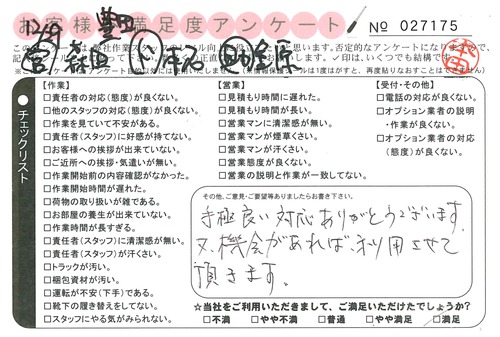 お客様満足度アンケート
№ 027175
12/9
チェックリスト
【作業】
□責任者の対応(態度)が良くない。
□他のスタッフの対応(態度)が良くない。
□作業を見ていて不安がある。
□責任者(スタッフ)に好感が持てない。
□お客様への挨拶が出来ていない。
□ご近所への挨拶・気遣いが無い。
□作業開始前の内容確認がなかった。
□作業開始時間が遅れた。
□荷物の取り扱いが雑である。
□お部屋の養生が出来ていない。
□作業時間が長すぎる。
□責任者(スタッフ)に清潔感が無い。
□責任者(スタッフ)が汗くさい。
□トラックが汚い。
□梱包資材が汚い。
□運転が不安(下手)である。
□靴下の履き替えをしてない。
□スタッフにやる気がみられない。
【営業】
□見積もり時間に遅れた。
□見積もり時間が長い。
□営業マンに清潔感が無い。
□営業マンが煙草くさい。
□営業マンが汗くさい。
□営業態度が良くない。
□営業の説明と作業が一致してない。
【受付・その他】
□電話の対応が良くない。
□オプション業者の説明
・作業が良くない。
□オプション業者の対応
(態度)が良くない。
その他、ご意見・ご要望等ありましたらお書き下さい。
手極良い対応ありがとうございます。
又、機会があれば、利用させて
頂きます。
☆当社をご利用いただきまして、ご満足いただけたでしょうか?
□不満 □やや不満 □普通 □やや満足 □満足